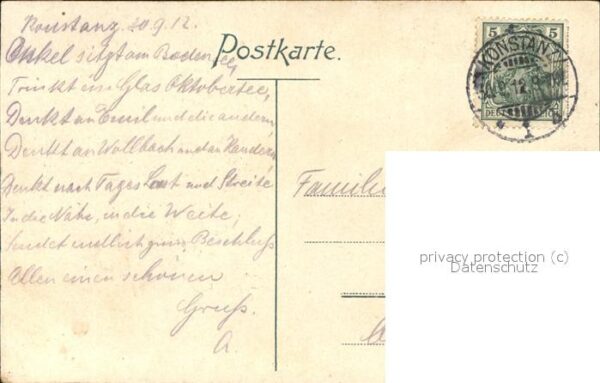 Konstanz. 20.9.12.
Onkel sitzt am Bodensee,
Trinkt ein Glas Oktobertee,
Denkt an Emil und die andern,
Denkt an Wollbach und an Kandern
Denkt nach Tages Last und Streite
In die Nähe, in die Weite;
Sendet endlich zum Beschluß
Allen einen schönen
Gruß.
A.
Postkarte.
5 5
KONSTANZ
1
Famili
privacy protection (c)
Datenschutz